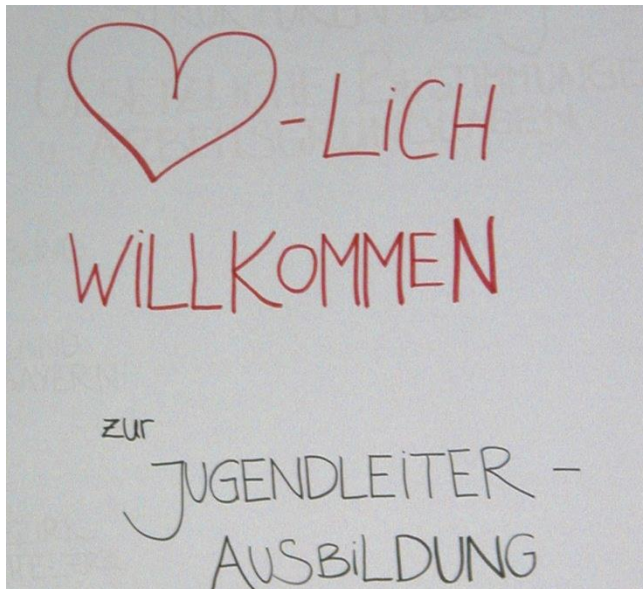 ♥-LiCH
WiLLKOMMEN
zur
JUGENDLEiTER-
AUSBiLDUNG